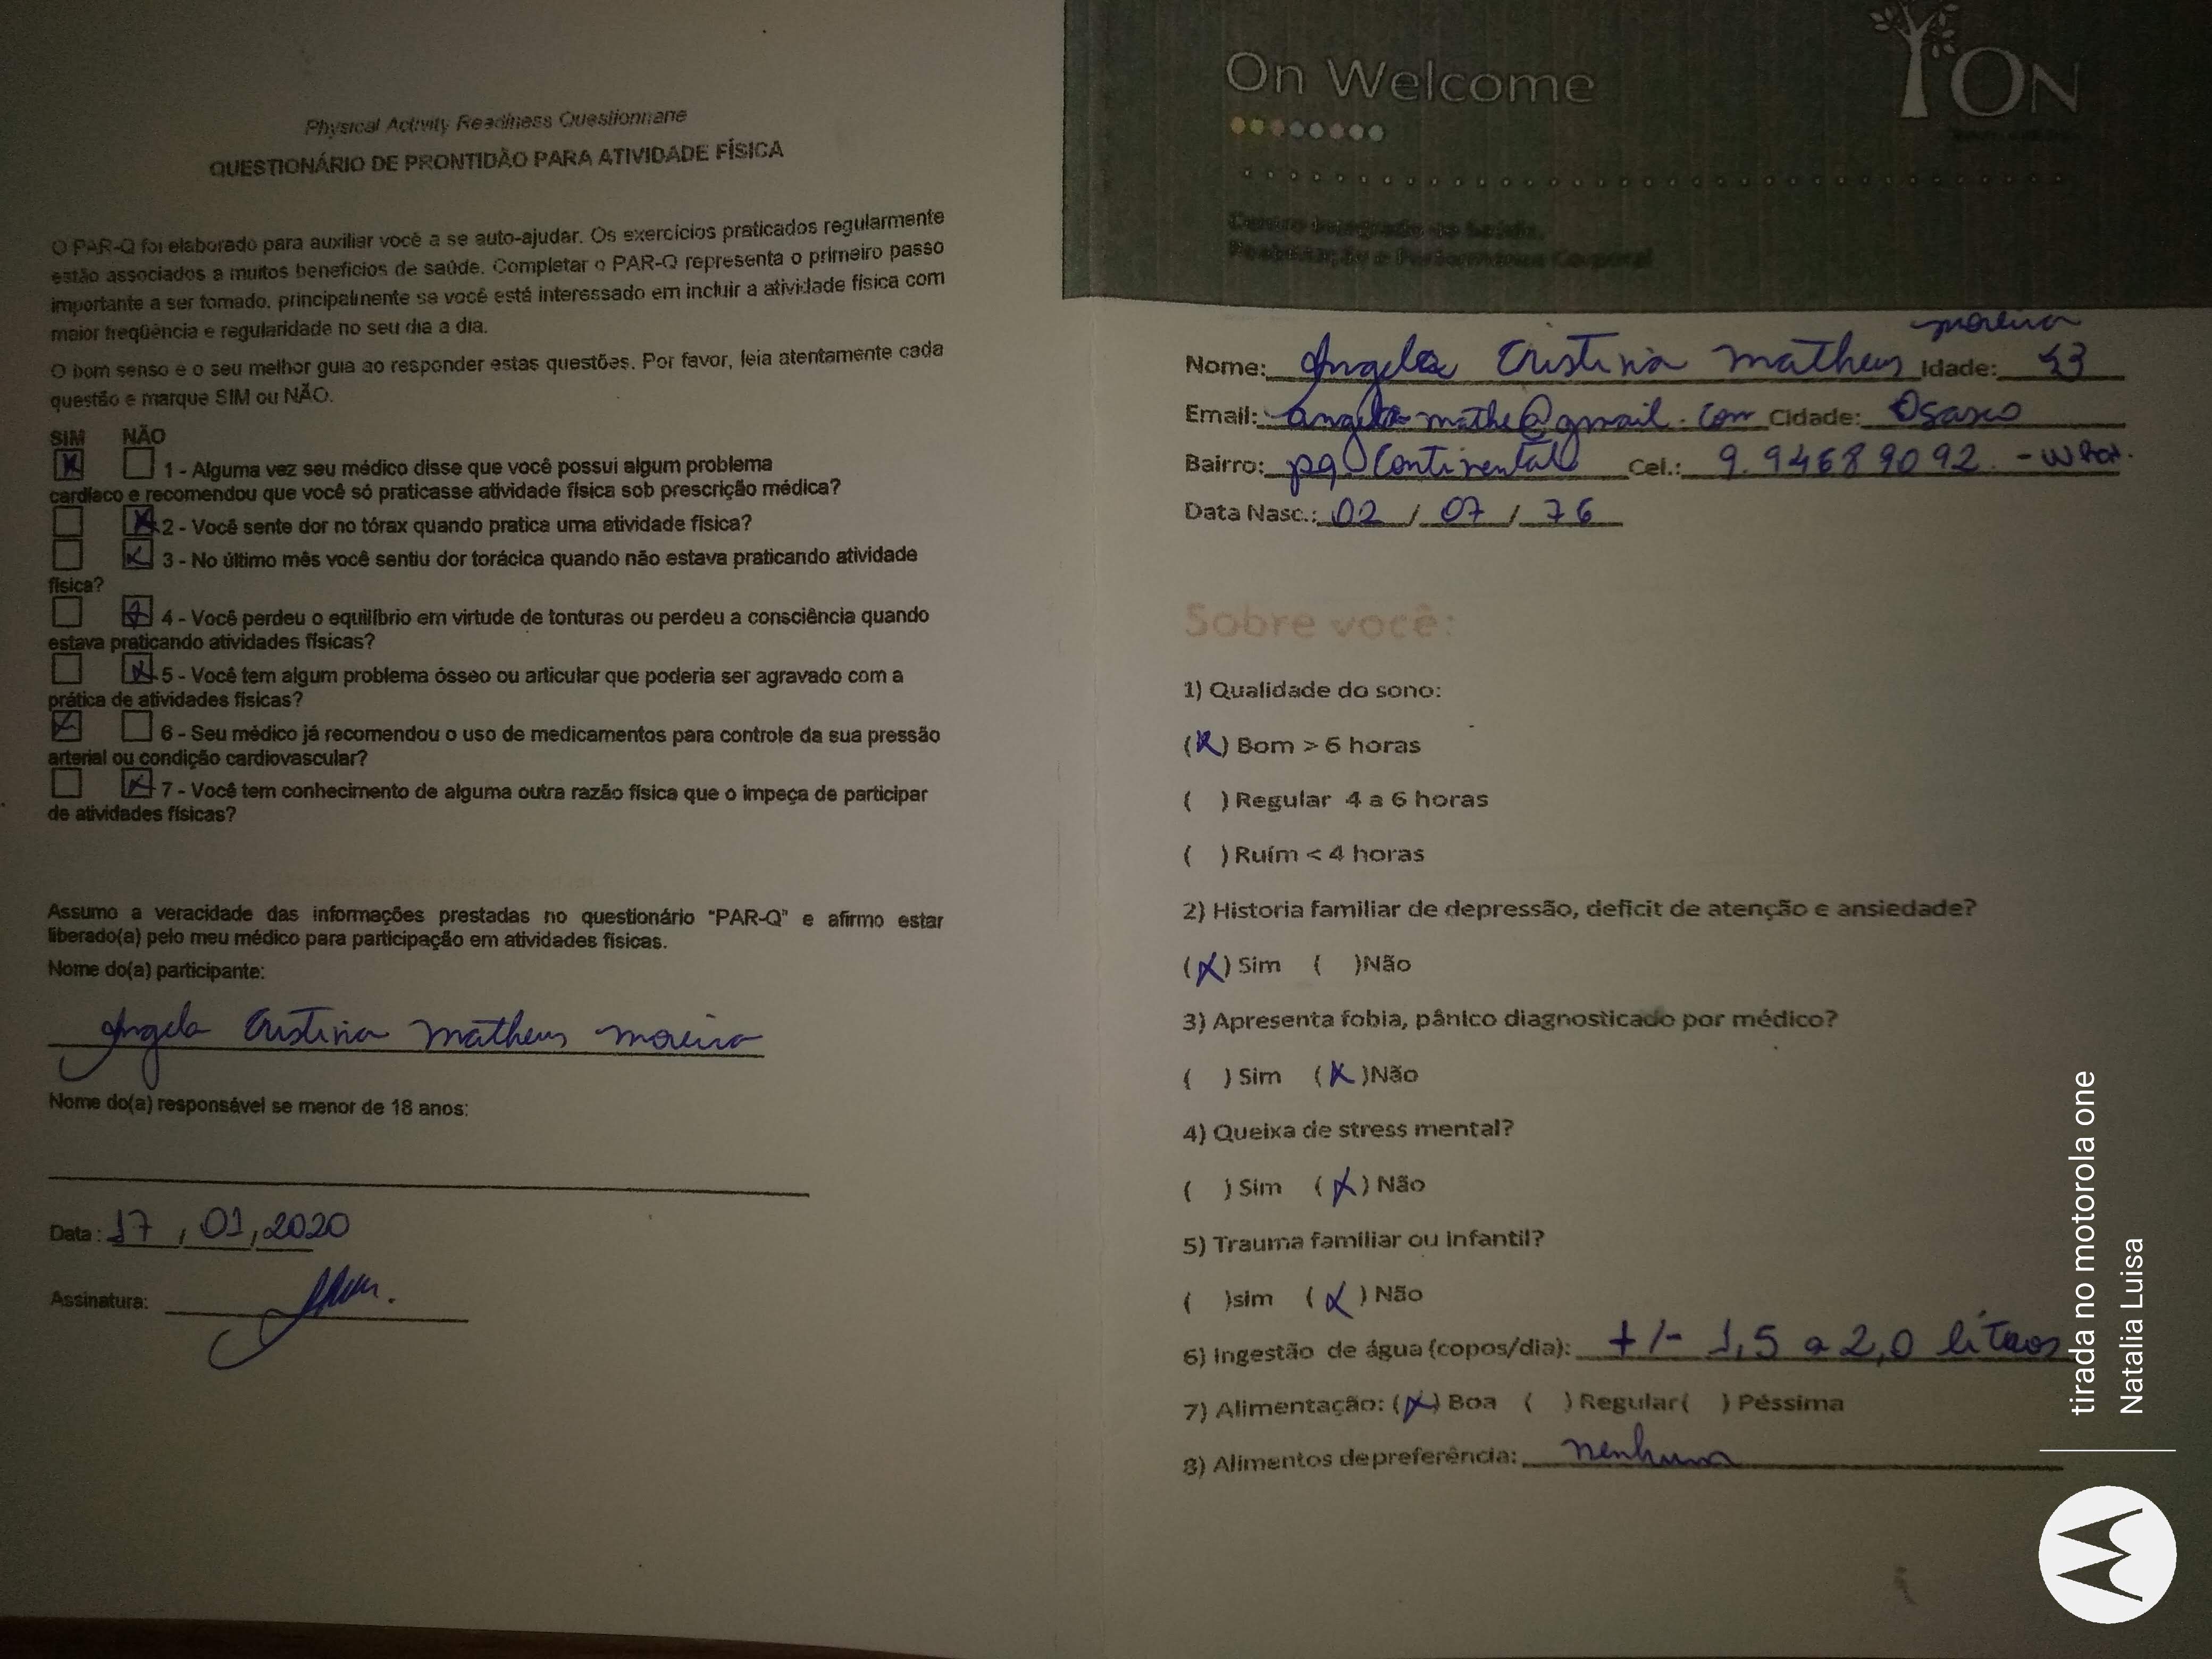 Physical Activity Readiness Questionnaire
QUESTIONÁRIO DE PRONTIDÃO PARA ATIVIDADE FÍSICA
O PAR-Q foi elaborado para auxiliar você a se auto-ajudar. Os exercícios praticados regularmente
estão associados a muitos benefícios de saúde. Completar o PAR-Q representa o primeiro passo
importante a ser tomado, principalmente se você está interessado em incluir a atividade física com
maior freqüência e regularidade no seu dia a dia.
O bom senso e o seu melhor guia ao responder estas questões. Por favor, leia atentamente cada
questão e marque SIM ou NÃO.
SIM NÃO
[X] [ ] 1 - Alguma vez seu médico disse que você possui algum problema
cardíaco e recomendou que você só praticasse atividade física sob prescrição médica?
[ ] [X] 2 - Você sente dor no tórax quando pratica uma atividade física?
[ ] [X] 3 - No último mês você sentiu dor torácica quando não estava praticando atividade
física?
[ ] [X] 4 - Você perdeu o equilíbrio em virtude de tonturas ou perdeu a consciência quando
estava praticando atividades físicas?
[ ] [X] 5 - Você tem algum problema ósseo ou articular que poderia ser agravado com a
prática de atividades físicas?
[X] [ ] 6 - Seu médico já recomendou o uso de medicamentos para controle da sua pressão
arterial ou condição cardiovascular?
[ ] [X] 7 - Você tem conhecimento de alguma outra razão física que o impeça de participar
de atividades físicas?
Assumo a veracidade das informações prestadas no questionário "PAR-Q" e afirmo estar
liberado(a) pelo meu médico para participação em atividades físicas.
Nome do(a) participante:
Angela Cristina Matheus Moreira
Nome do(a) responsável se menor de 18 anos:
Data: 17, 01, 2020
Assinatura:
On Welcome
ON
Moreira
Nome: Angela Cristina Matheus Idade: 43
Email: angela.mathe@gmail.com Cidade: Osasco
Bairro: pq Continental Cel.: 9.94689092 - What.
Data Nasc.: 02 / 07 / 76
Sobre você:
1) Qualidade do sono:
(X) Bom > 6 horas
( ) Regular 4 a 6 horas
( ) Ruím < 4 horas
2) Historia familiar de depressão, deficit de atenção e ansiedade?
(X) Sim ( )Não
3) Apresenta fobia, pânico diagnosticado por médico?
( ) Sim (X)Não
4) Queixa de stress mental?
( ) Sim (X) Não
5) Trauma familiar ou infantil?
( )sim (X) Não
6) Ingestão de água (copos/dia): +/- 1,5 a 2,0 litros
7) Alimentação: (X) Boa ( ) Regular( ) Péssima
8) Alimentos de preferência: nenhuma
tirada no motorola one
Natalia Luisa